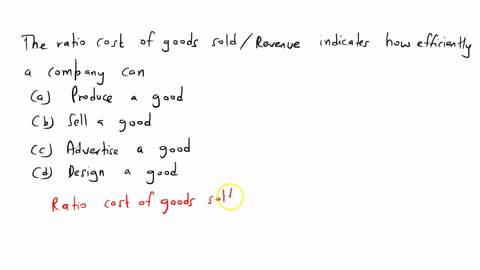 The ratio cost of goods sold/Revenue indicates how efficiently
a company can
(a) Produce a good
(b) Sell a good
(c) Advertise a good
(d) Design a good
Ratio cost of goods sol